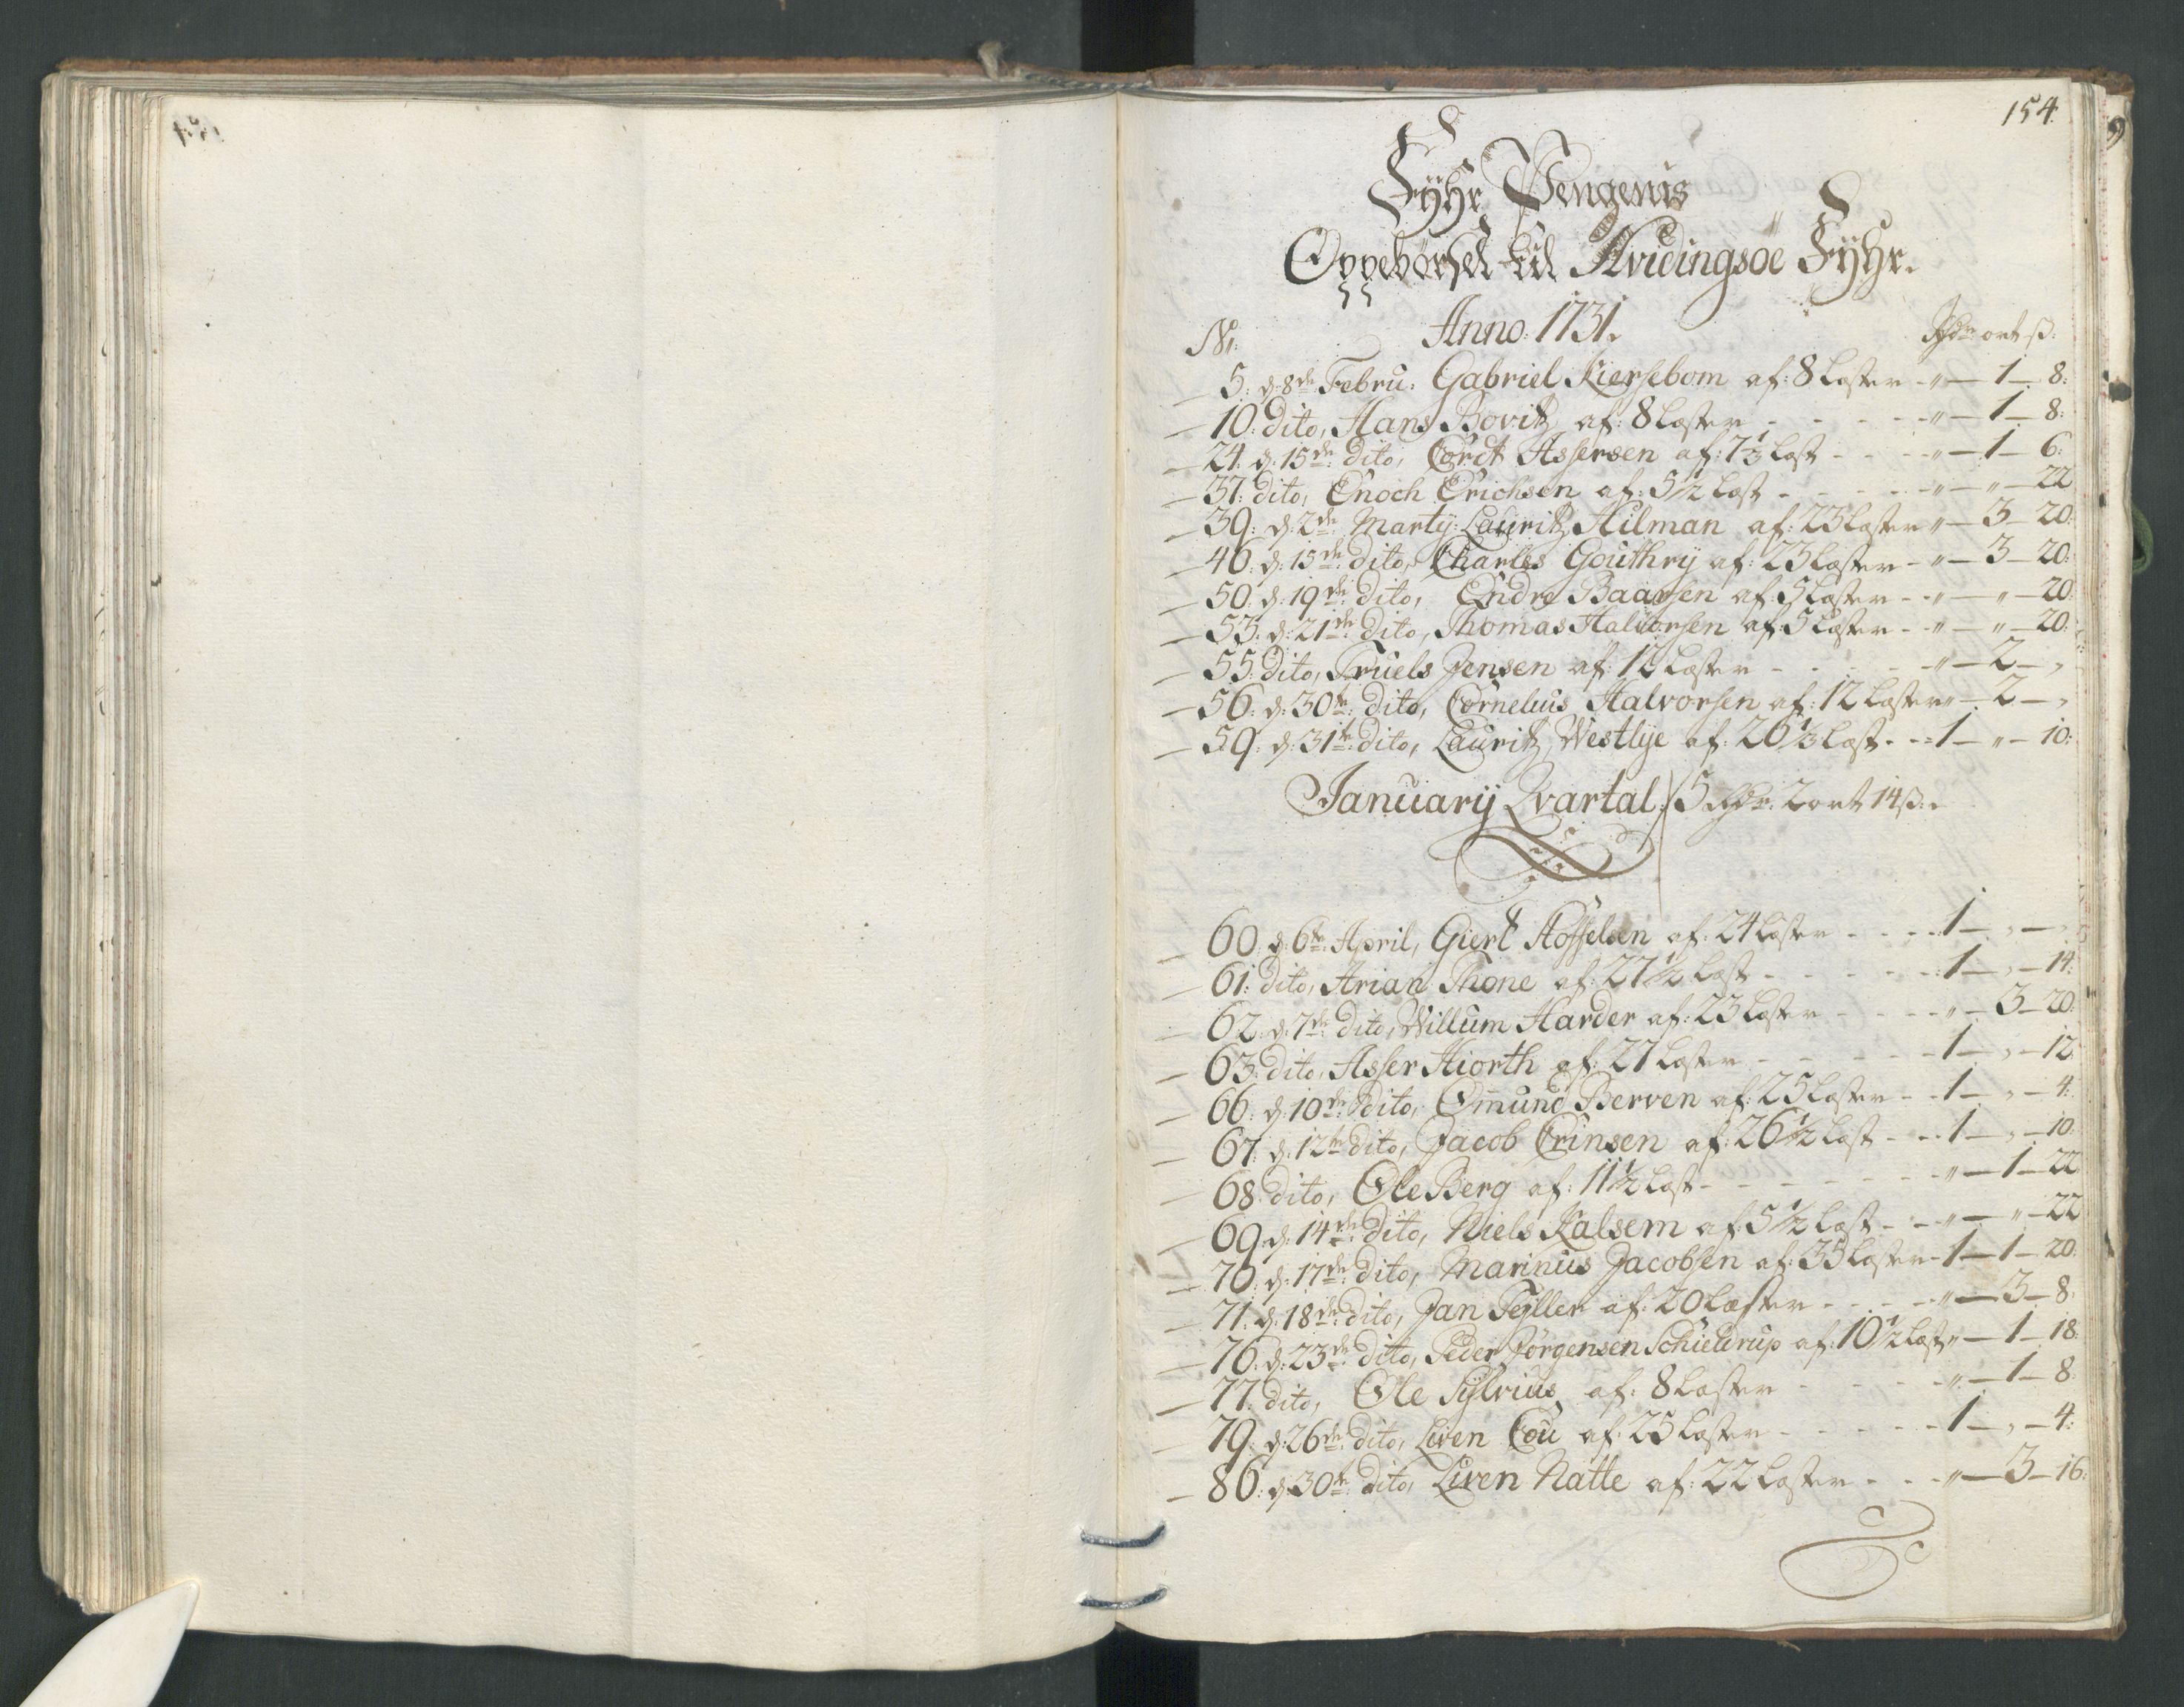 154.
Fÿhr Pengenis
Oppebørsel til Hvidingsøe Fÿhr.
Anno 1731.
No: Rdr ort ß:
5: d: 8de Febru: Gabriel Kiersebom af: 8 Læster - " - 1 - 8:
10: dito, Hans Bovitz af: 8 Læster - - - - " - 1 - 8:
24: d: 15de dito, Cordt Assersen af: 7⅓ Læst - - - " - 1 - 6:
37: dito, Enoch Erichsen af: 5½ Læst - - - - " - " - 22
39: d: 2de Martÿ: Lauritz Hilman af: 23 Læster " - 3 - 20:
46: d: 15de dito, Charles Gouthrÿ af: 23 Læster - " - 3 - 20:
50: d: 19de dito, Endre Baarsen af: 5 Læster - - " - " - 20
53: d: 21de dito, Thomas Halvorsen af: 5 Læster - - " - " - 20:
55: dito, Truels Jensen af: 12 Læster - - - - " - 2 - ,
56: d: 30te dito, Cornelius Halvorsen af: 12 Læster " - 2 - ,
59: d: 31te dito, Lauritz Westlÿe af: 26⅓ Læst - - 1 - " - 10:
Januarÿ Qvartal: 5 Rdr: 2 ort 14 ß:
60: d: 6te April, Giert Hoffelsen af: 24 Læster - - - 1 - , - ,
61: dito, Arian Thone af: 27½ Læst - - - - - 1 - , - 14:
62: d: 7de dito, Willum Harder af: 23 Læster - - - " - 3 - 20:
63: dito, Asser Hiorth af: 27 Læster - - - - - 1 - , - 12
66: d: 10de dito, Om̄und Berven af: 25 Læster - - 1 - , - 4:
67: d: 12te dito, Jacob Crinsen af: 26½ Læst - - 1 - , - 10
68: dito, Ole Berg af: 11½ Læst - - - - - " - 1 - 22
69: d: 14de dito, Niels Kalsem af: 5½ Læst - - " - " - 22
70: d: 17de dito, Marinus Jacobsen af: 35 Læster - 1 - 1 - 20:
71: d: 18de dito, Jan Teÿller af: 20 Læster - - - - " - 3 - 8:
76: d: 23de dito, Peder Jørgensen Schielderup af: 10½ Læst " - 1 - 18:
77: dito, Ole Sÿlvius af: 8 Læster - - - - " - 1 - 8:
79: d: 26de dito, Liven Cou af: 25 Læster - - - - 1 - , - 4:
86: d: 30te dito, Liven Natte af: 22 Læster - - - " - 3 - 16: